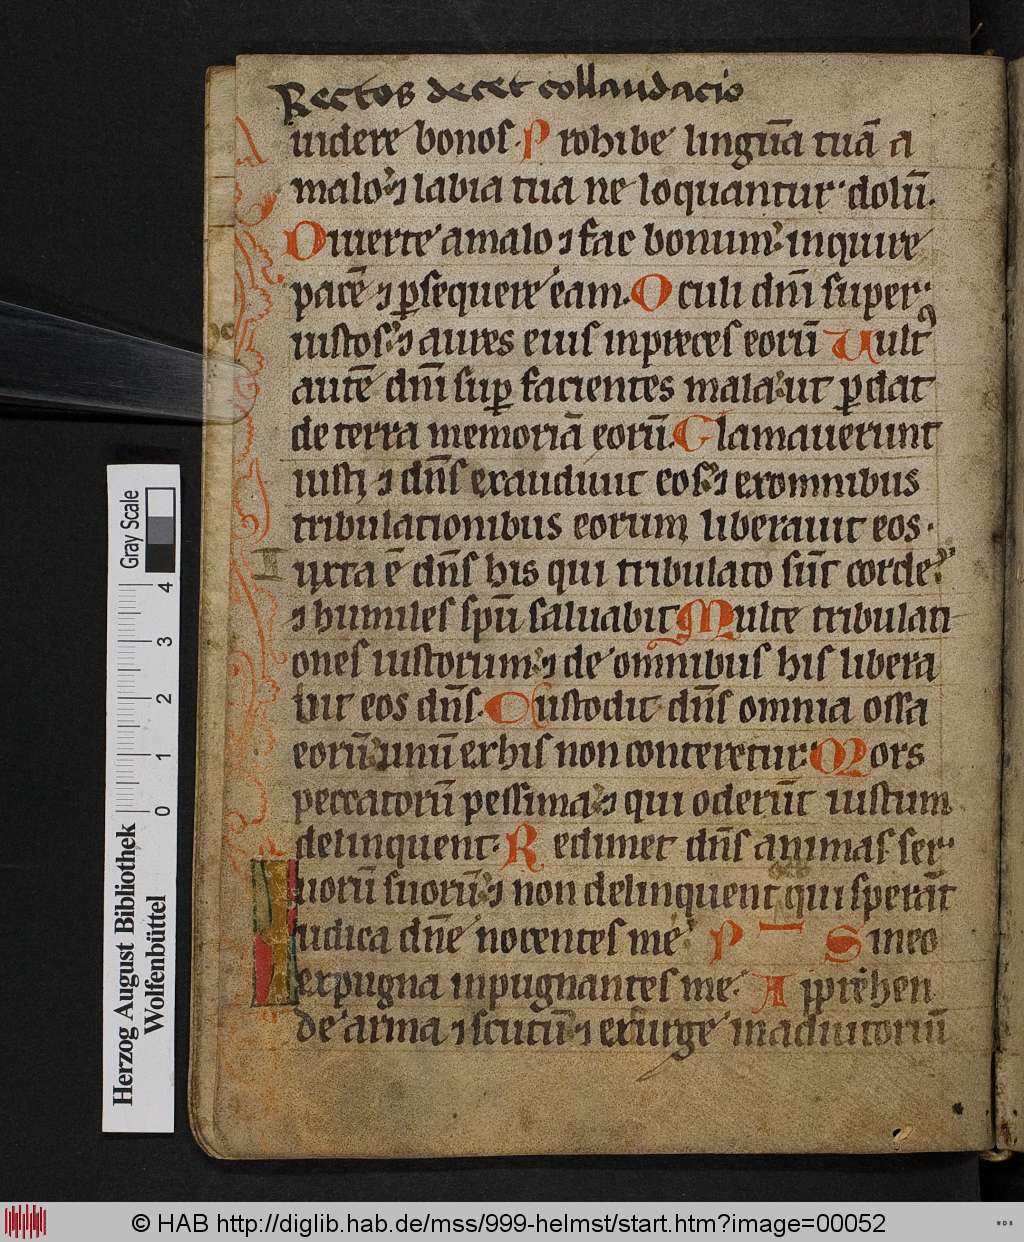 Rectos decet collaudacio
uidere bonos. Prohibe linguā tuā a
malo ⁊ labia tua ne loquantur dolū.
Diuerte a malo ⁊ fac bonum inquire
pacē ⁊ ꝑsequere eam. Oculi dn̄i super
iustos ⁊ aures eius in preces eorū Uultꝰ
autē dn̄i suꝑ facientes mala ut ꝑdat
de terra memoriā eorū. Clamauerunt
iusti ⁊ dn̄s exaudiuit eos ⁊ ex omnibus
tribulationibus eorum liberauit eos.
Iuxta ē dn̄s his qui tribulato sūt corde
⁊ humiles sp̄u saluabit Multe tribulati
ones iustorum ⁊ de omnibus his libera
uit eos dn̄s. Custodit dn̄s omnia ossa
eorū unū ex his non conteretur. Mors
peccatorū pessima ⁊ qui oderūt iustum
delinquent. Redimet dn̄s animas ser
uorū suorū ⁊ non delinquent qui sperāt
Iudica dn̄e nocentes me P S in eo
expugna inpugnantes me. Apprehen
de arma ⁊ scutū ⁊ exsurge in adiutoriū
Gray Scale
0 1 2 3 4
Herzog August Bibliothek
Wolfenbüttel
© HAB http://diglib.hab.de/mss/999-helmst/start.htm?image=00052